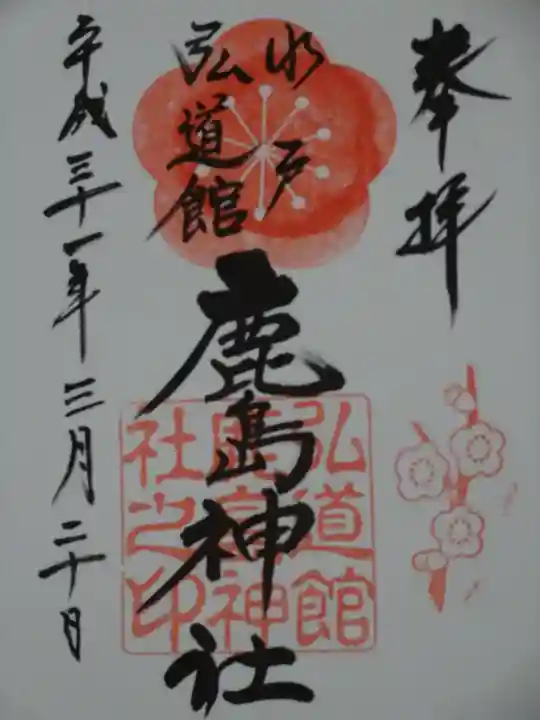 奉拝
水戸
弘道館
鹿島神社
弘道館
鹿島神
社之印
平成三十一年三月二十日